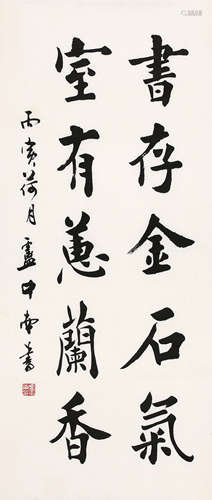 書存金石氣
室有蕙蘭香
丙寅荷月盧中南書